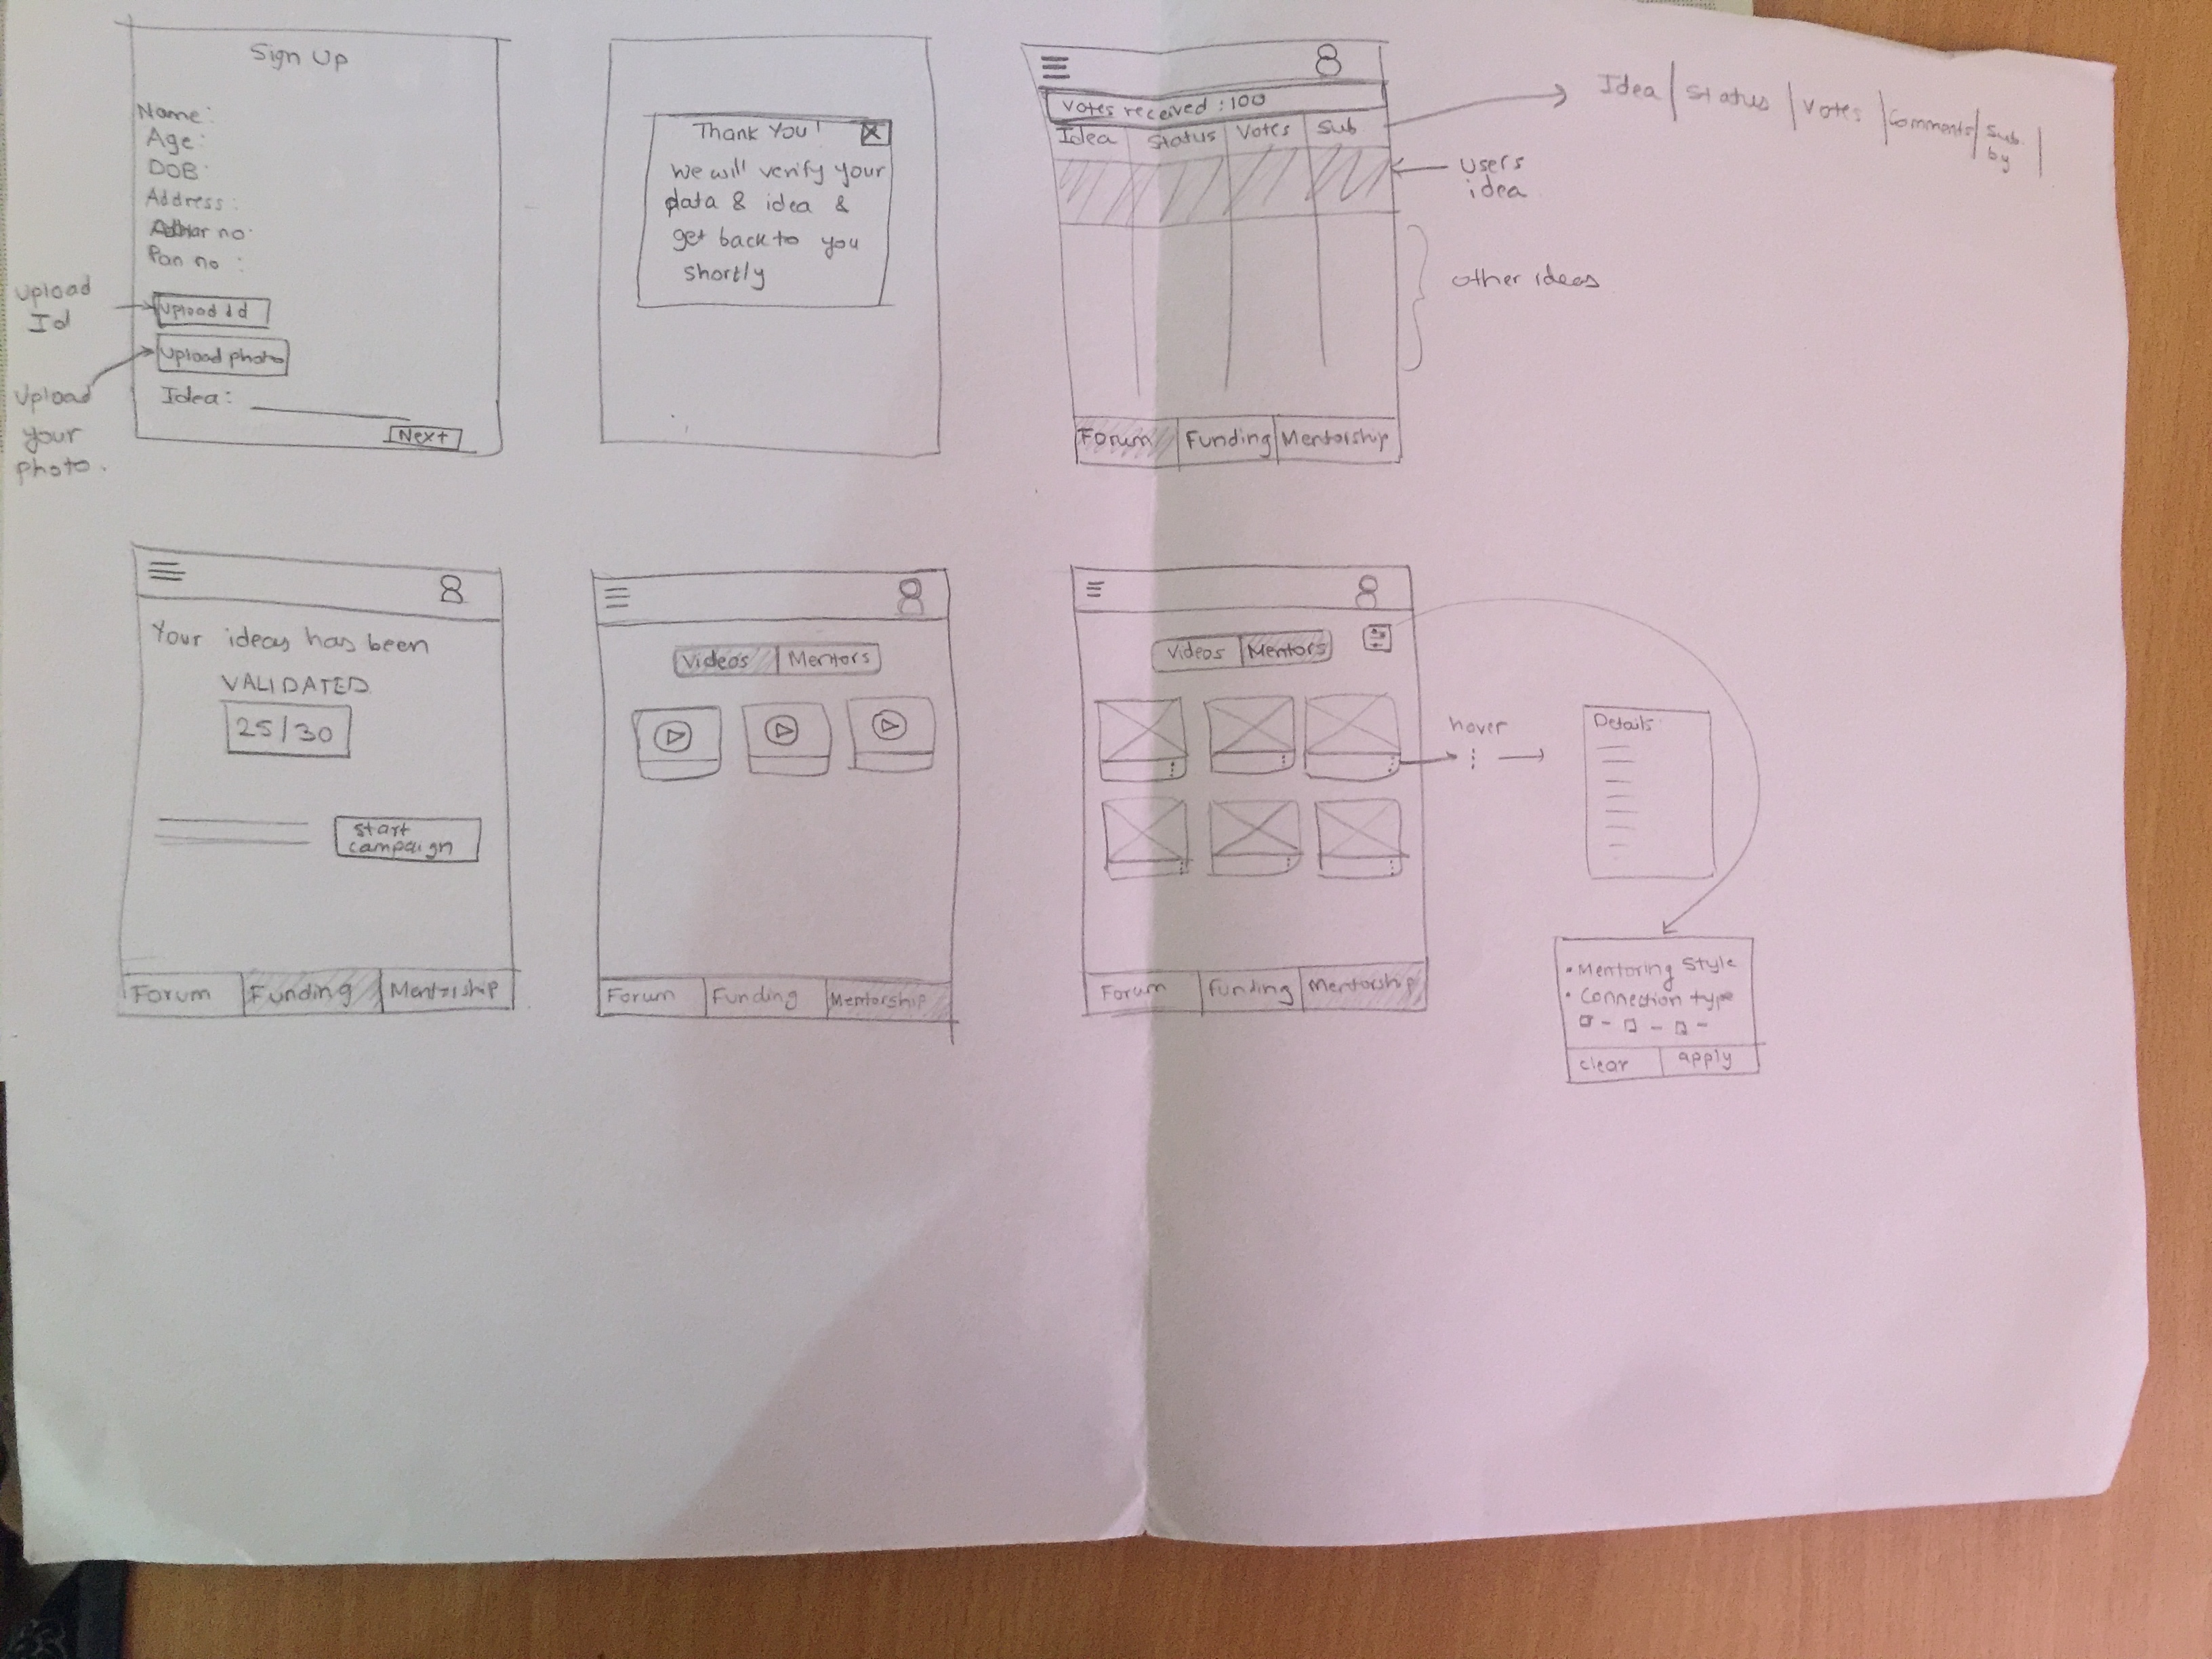 Sign Up
Name:
Age:
DOB:
Address:
Adhar no:
Pan no:
Upload Id
Upload photo
Idea:
Next
Upload
Id
Upload
your
photo.
Thank You!
X
We will verify your
data & idea &
get back to you
shortly
Votes received: 100
Idea Status Votes Sub
Forum Funding Mentorship
Users
idea
other ideas
Idea | Status | Votes | Comments | Sub. by |
Your ideas has been
VALIDATED
25/30
Start
campaign
Forum Funding Mentorship
Videos Mentors
Forum Funding Mentorship
Videos Mentors
Forum Funding Mentorship
hover
Details
• Mentoring Style
• Connection type
clear apply